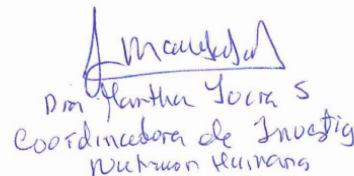 Dra Martha Lucia S
Coordinadora de Investig
Nutricion Humana